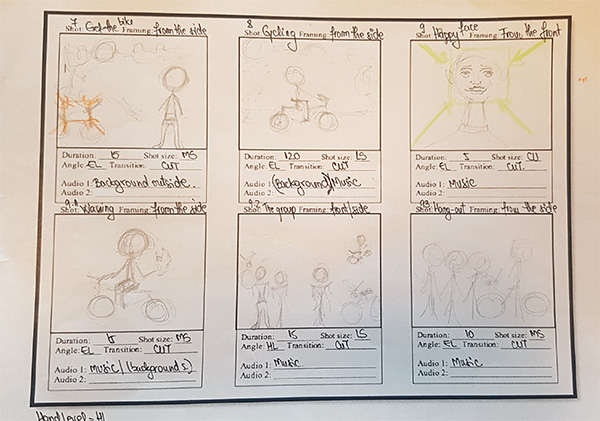 7 Get the bike
Shot: Framing: from the side
Duration: 15 Shot size: MS
Angle: EL Transition: CUT
Audio 1: Background outside.
Audio 2:
8 Cycling
Shot: Framing: from the side
Duration: 120 Shot size: LS
Angle: EL Transition: CUT
Audio 1: (Background)/Music
Audio 2:
9 Happy face
Shot: Framing: From the front
Duration: 5 Shot size: CU
Angle: EL Transition: CUT.
Audio 1: Music
Audio 2:
9.1 Waving
Shot: Framing: from the side
Duration: 15 Shot size: MS
Angle: EL Transition: CUT
Audio 1: Music/(background s.)
Audio 2:
9.2 The group
Shot: Framing: front/side
Duration: 15 Shot size: LS
Angle: HL Transition: CUT
Audio 1: Music.
Audio 2:
93 Hang-out
Shot: Framing: from the side
Duration: 10 Shot size: MS
Angle: EL Transition: CUT
Audio 1: Music
Audio 2:
Hand Level = HL